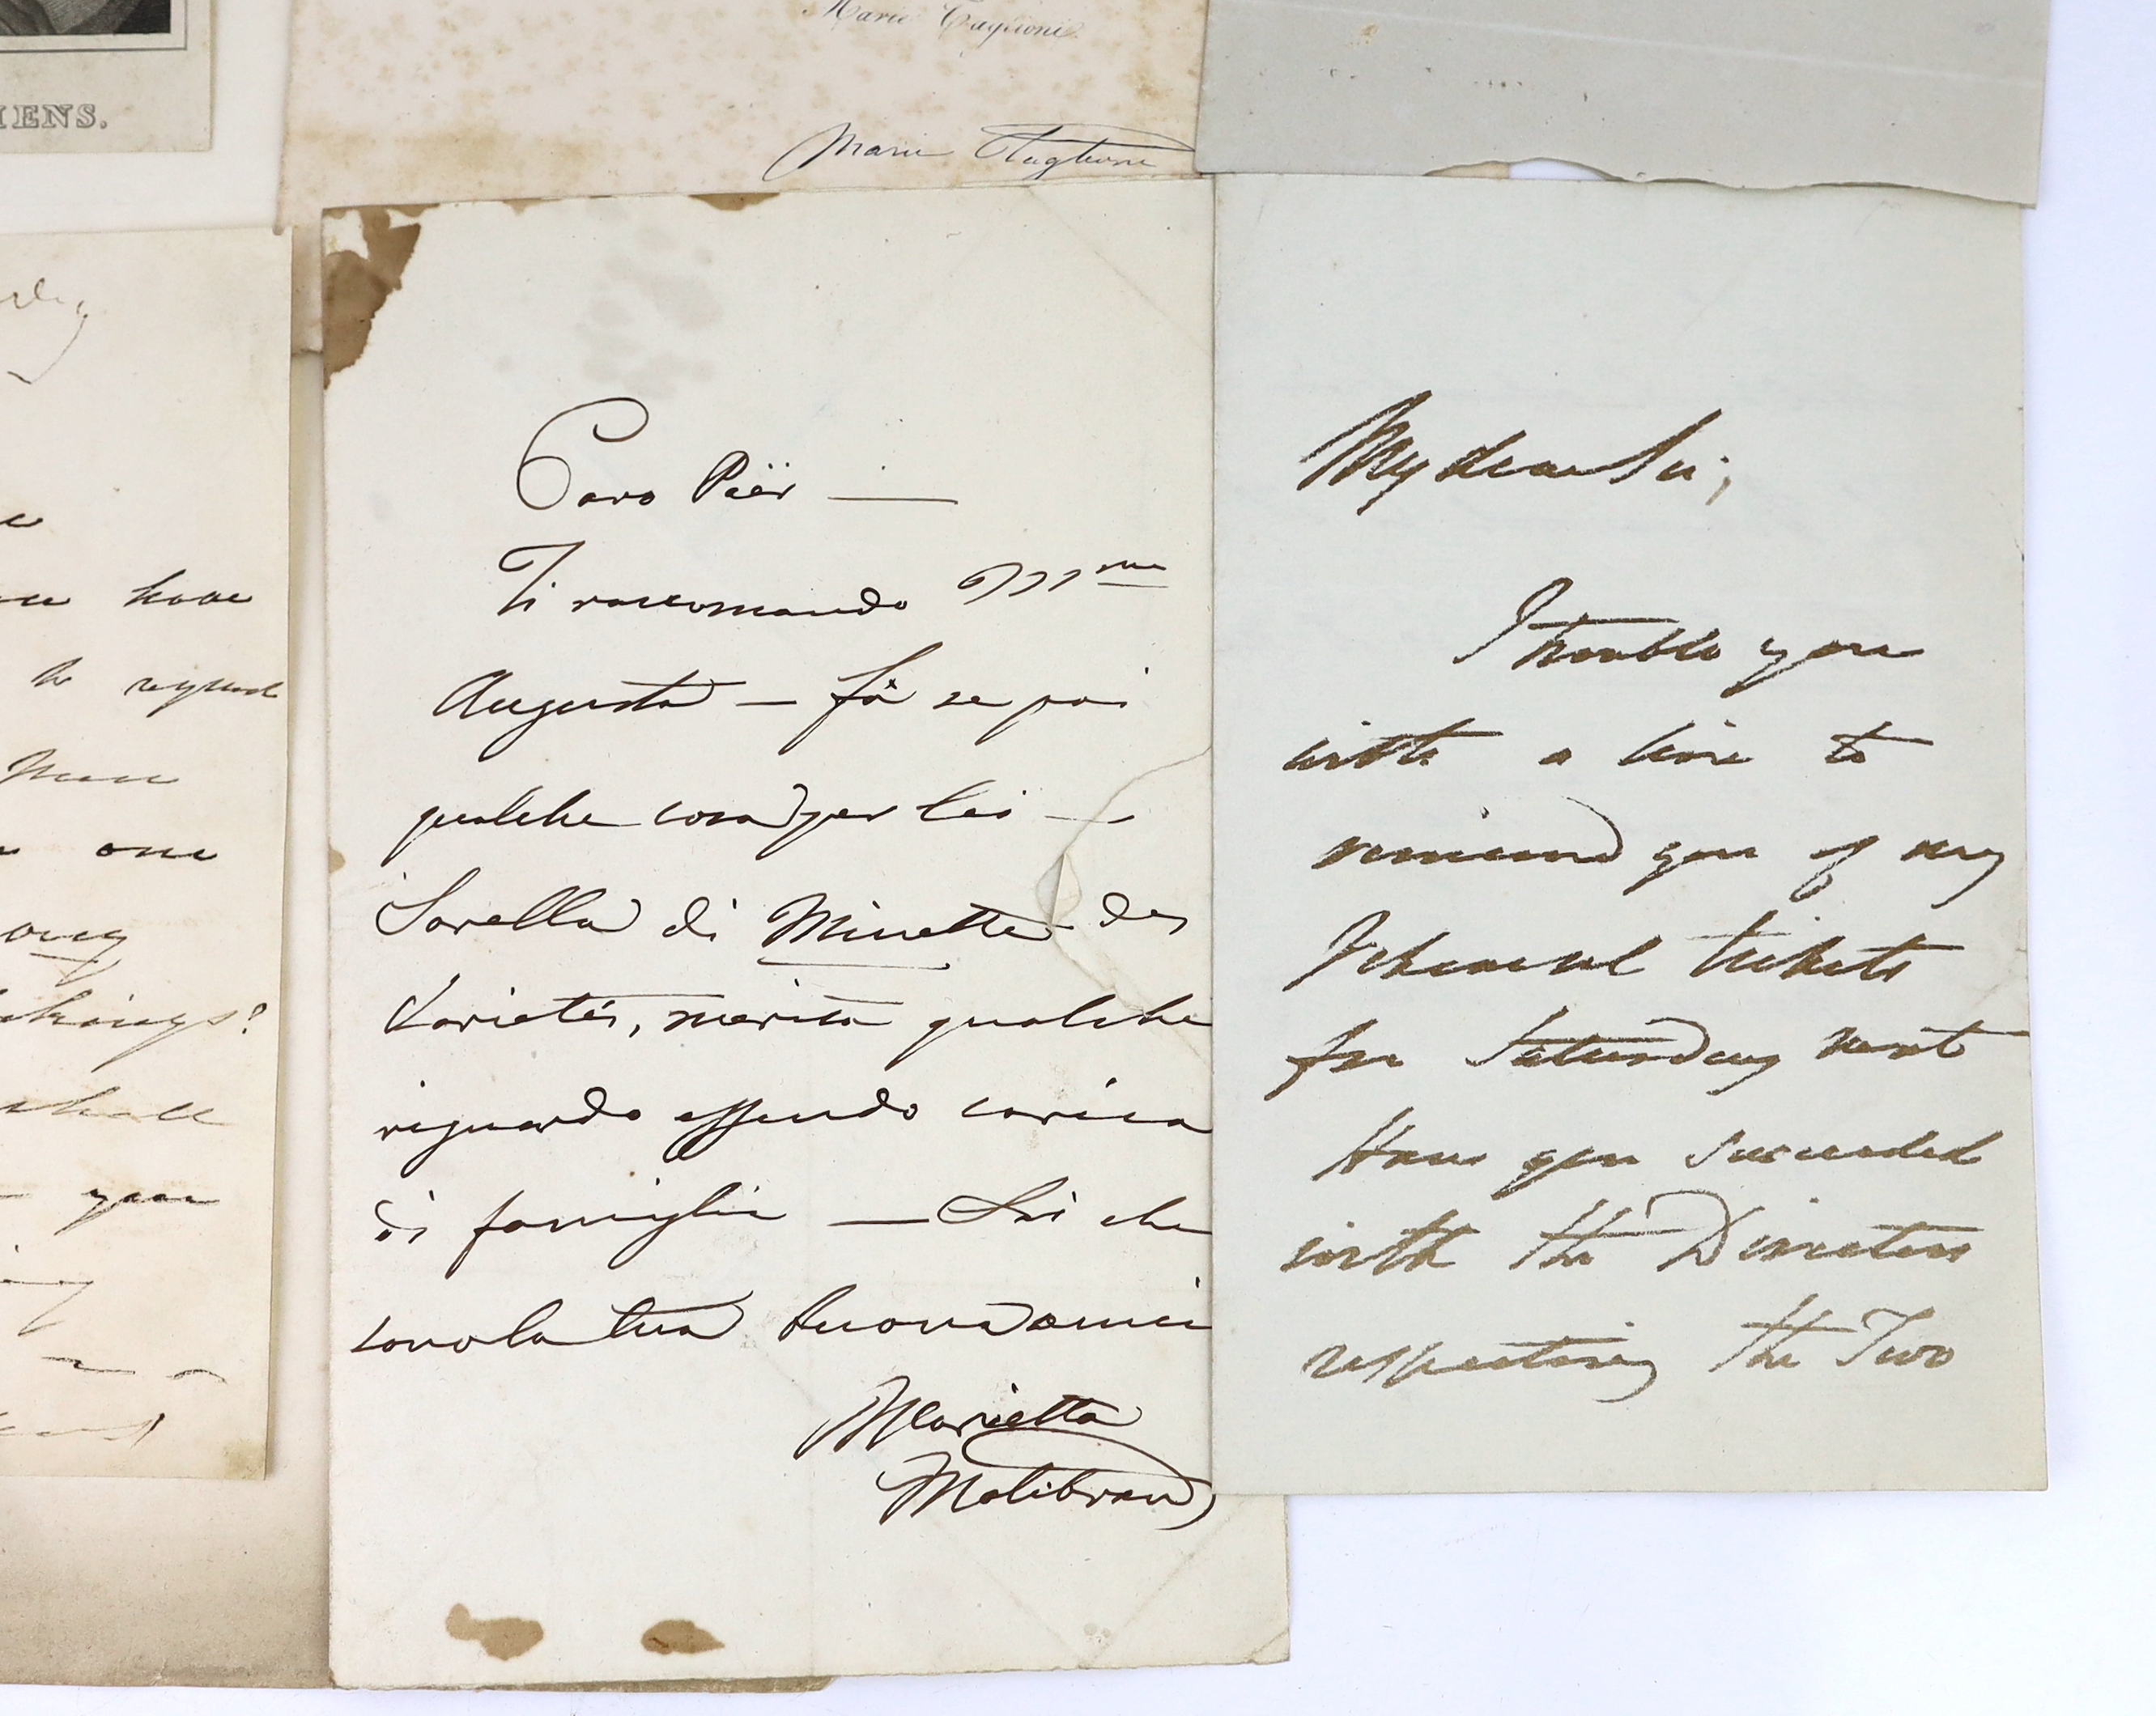 IENS.
Marie Taglioni
Marie Taglioni
have
to request
one
things?
shall
your
Caro Päër —
Ti raccomando Mme
Augusta — fà se poi
qualche cosa per lei —
Sorella di Minette des
Varietés, merita qualche
riguardo essendo carica
di famiglia — Sai che
sono la tua buona amica
Marietta
Malibran
My dear Sir,
I trouble you
with a line to
remind you of my
Rehearsal tickets
for Saturday next
Have you succeeded
with the Directors
respecting the Two